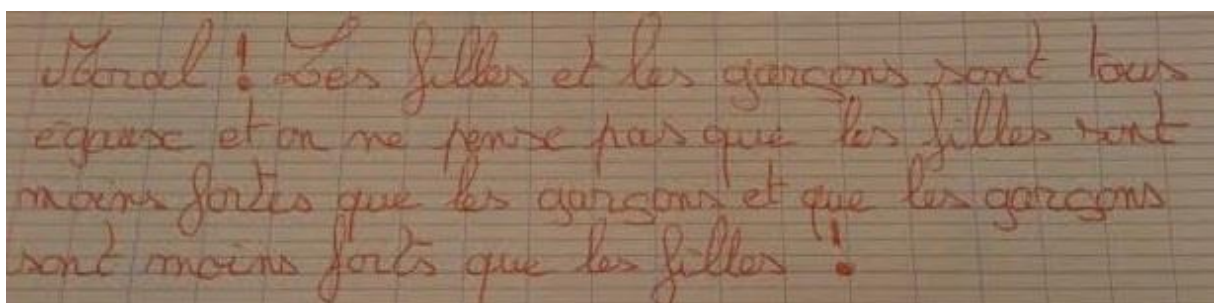 Moral ! Les filles et les garçons sont tous
égaux et on ne pense pas que les filles sont
moins fortes que les garçons et que les garçons
sont moins forts que les filles !